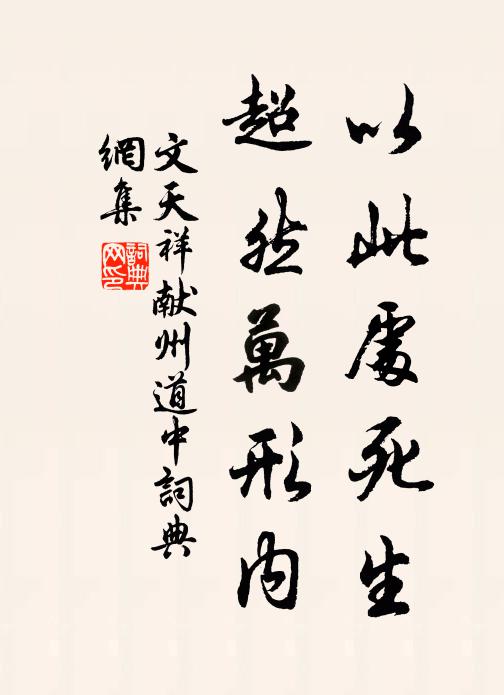 以此處死生
超然萬形内
文天祥献州道中詞典
網集
詞典
网印